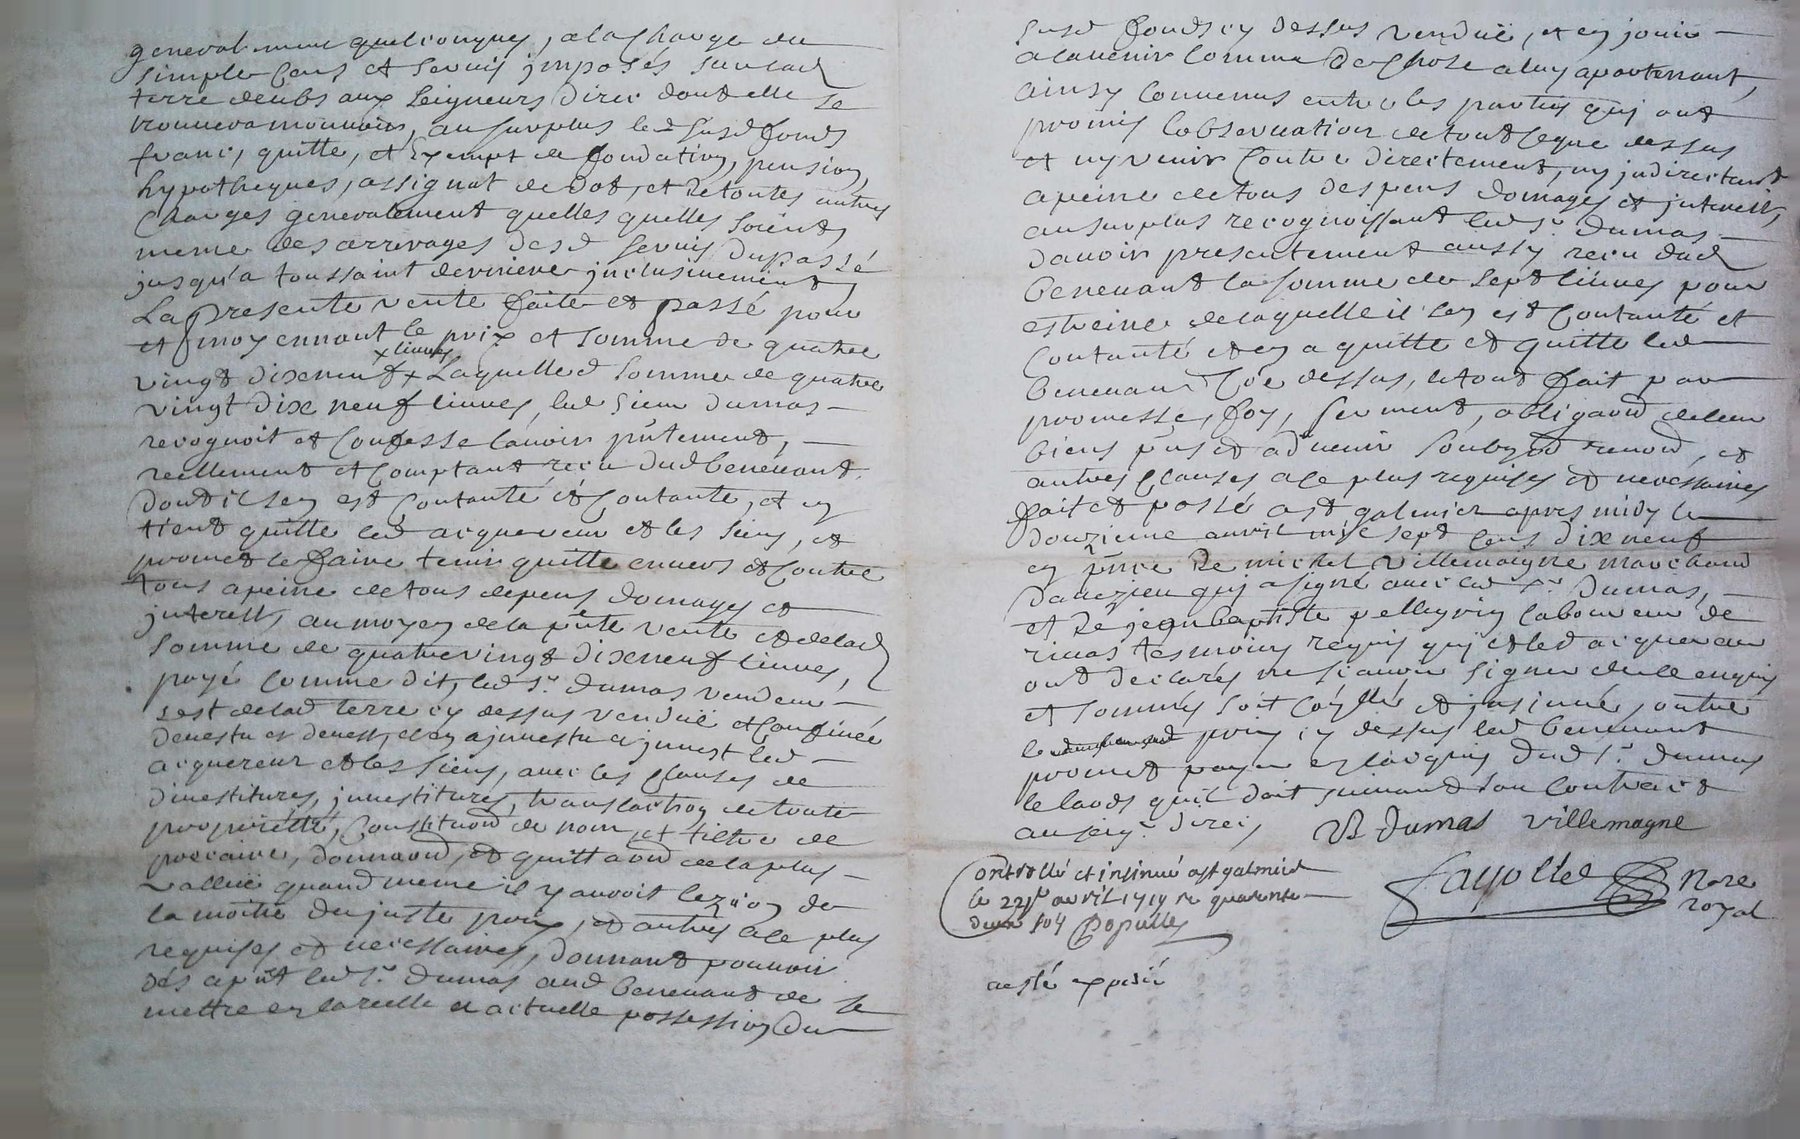 generalement quelconques, a la charge du
simple cens et servis imposés sur lad
terre deubs aux seigneurs direc dont elle se
trouvera mouvoir, au surplus led susd fonds
franc, quitte, et exempt de fondation, pension,
hypotheques, assignat de dot, et de toutes autres
charges generalement quelles quelles soient,
meme des arrerages desd servis du passé
jusqu'a toussaint derniere inclusivement,
La presente vente faite et passé pour
et moyennant le prix et somme de quatre
x livres
vingt dixneuf x Laquelle d somme de quatre
vingt dix neuf livres, led sieur dumas
recognoit et confesse lavoir pntement,
reellement et comptant receu dud benevant
dont il sen est contanté et contante, et en
tient quitte led acquereur et les siens, et
promet le faire tenir quitte envers et contre
tous a peine de tous depens domages et
interetts, au moyen de la pnte vente et de lad
somme de quatrevingt dixneuf livres,
payé comme dit, led sr dumas vendeur
sest de lad terre cy dessus vendue et confinée
devestu et devest, et en a investu et invest led
acquereur et les siens, avec les clauses de
divestitures, investitures, translation de toute
proprietté, constituaon de nom, et tiltre de
precaire, donnaon, et quittaon de la plus
vallue quand meme il y auroit lezion de
la moitié du juste prix, et autres a ce plus
requises et necessaires, donnant pouvoir
dés a pnt led sr dumas aud benevant de se
mettre en la reelle et actuelle possession du
susd fonds cy dessus vendue, et en jouir
a lavenir comme de chose a luy apartenant,
ainsy convenus entre les parties qui ont
promis lobservation de tout ce que dessus
et ny venir contre directement, ny indirectemt
a peine de tous despens domages et interetts,
au surplus recognoissant led sr dumas
davoir presentement aussy receu dud
benevant la somme de sept livres pour
estreine de laquelle il sen est contanté et
contante et en a quitté et quitte led
benevant coe dessus, le tout fait par
promesse, foy, serment, obligaon de leur
biens pns et advenir soubzon renon, et
autres clauses a ce plus requises et necessaires
fait et passé a st galmier apres midy le
douzieme avril mil sept cens dix neuf
en pnce de michel villemagne marchand
daveizieu qui a signé avec led sr dumas,
et de jean baptiste pelleyrin laboureur de
rivas tesmoins requis qui et led acquereur
ont declarés ne scavoir signer de ce enquis
et sommés soit coyllé et insinué, outre
le prix cy dessus led benevant
promet payer en lacquis dud sr dumas
le laods quil doit suivant son contract
au seigr direc, VB dumas villemagne
Contrôllé et insinué a st galmier
le 22e avril 1719 re quarente
deux sols Popullex
Fayolle Nore
royal
a esté expedié